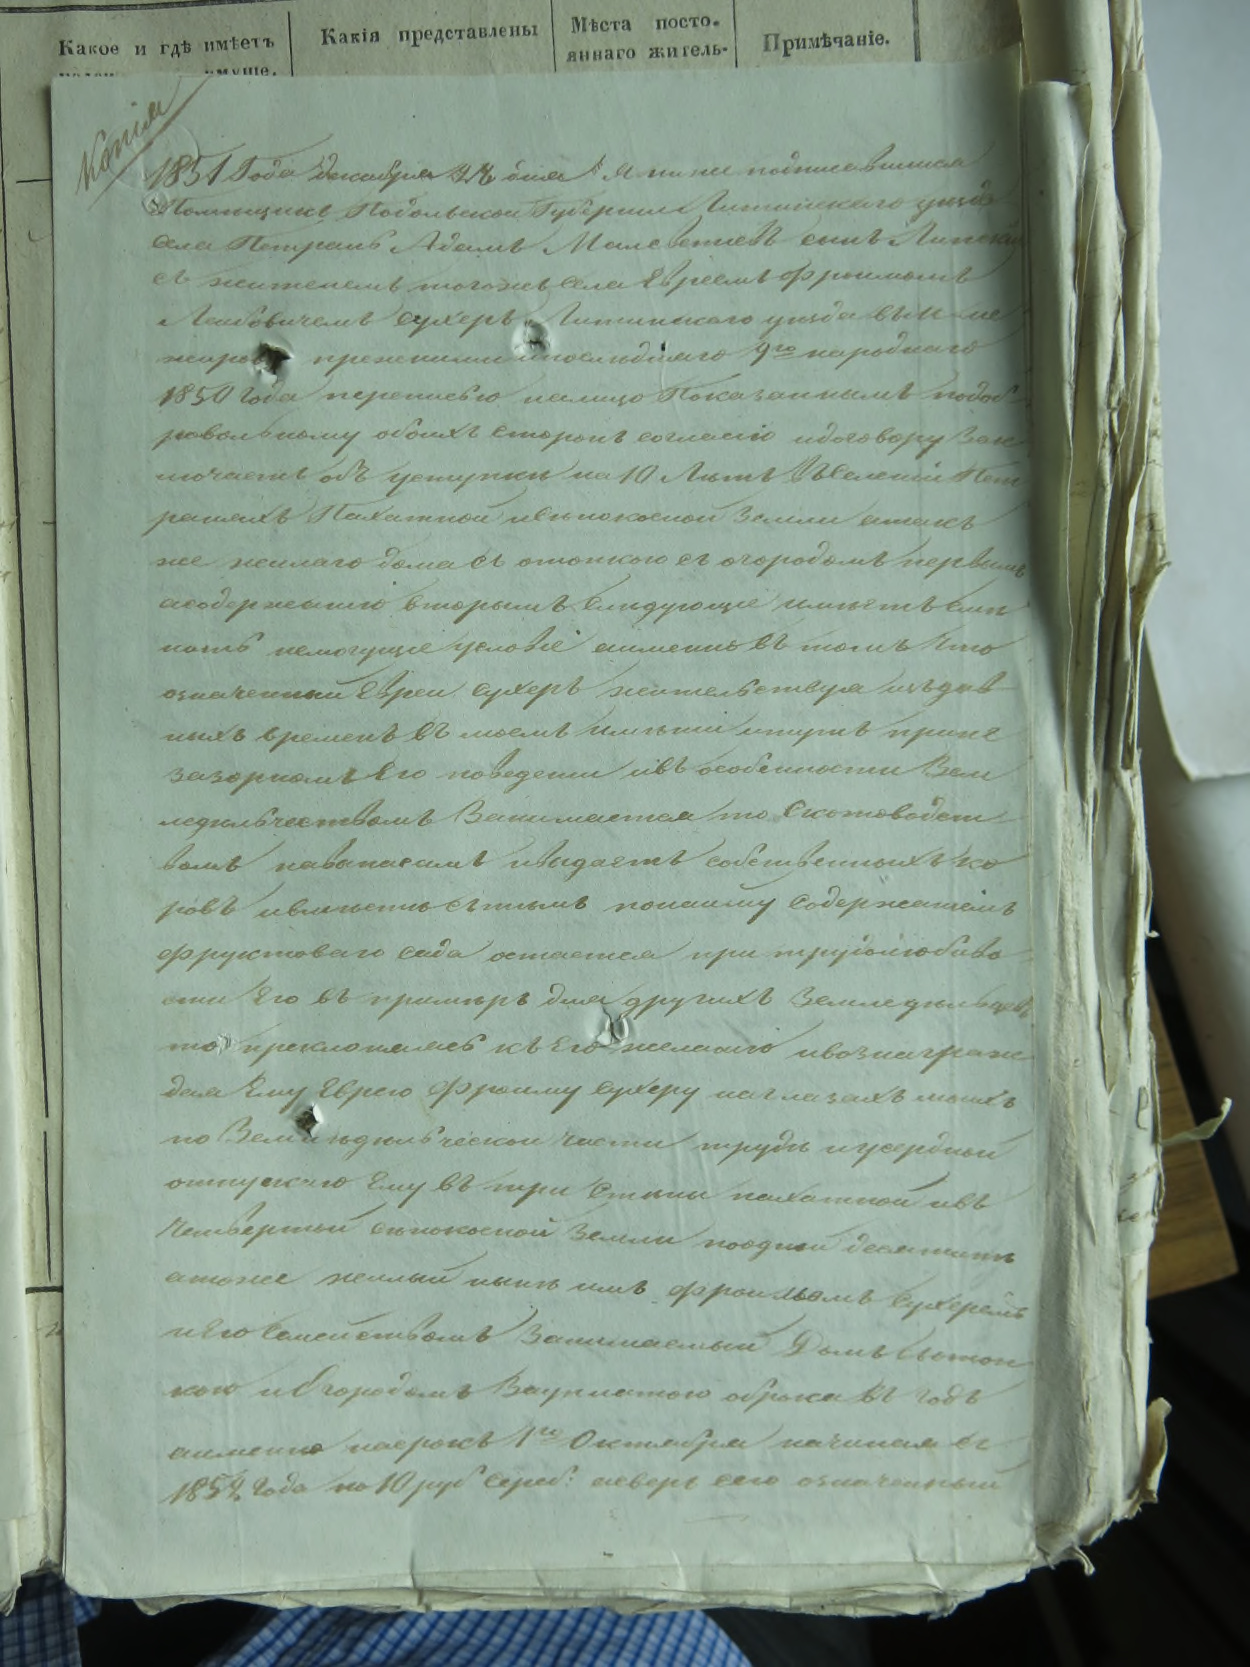 Какое и гдѣ имѣетъ
Какія представлены
Мѣста посто-
яннаго житель-
Примѣчаніе.
Копія
1851 Года декабря дня Я ниже подписавшійся
Помѣщикъ Подольской Губерніи Литинскаго уѣзда
села Петрань Адамъ сынъ Липскій
съ жителемъ тогожъ села Евреемъ Фроимомъ
Лейбовичемъ Сухеръ Литинскаго уѣзда
прежними и послѣдняго 9го народнаго
1850 Года переписью налицо Показаннымъ подоб
ровольному обоихъ сторонъ согласію идоговору Зак
лючаетъ объ уступки на 10 Лѣтъ Въ селеніи Пет
раняхъ Пахатной исѣнокосной Земли атакъ
же жилаго дома съ отопкою съ огородомъ первымъ
асодержанію вторымъ слѣдующіе имѣетъ
немогущіе условіе аименно въ томъ Что
означенный Еврей Сухеръ жительствуя издав
ныхъ временъ въ моемъ имѣніи
зазорномъ Его поведеніи ивъ особенности Зем
ледѣльчествомъ Занимается то Скотоводст
вомъ собственныхъ ко
ровъ ивмѣстѣ сътѣмъ понайму Содержателемъ
фруктоваго сада остается при трудолюбиво
сти Его въ примѣръ для другихъ Земледѣльцевъ
то преклоняясь къ Его желанію ивознаграж
дая Ему Еврею Фроиму Сухеру наглазахъ моихъ
по Земледѣльческой части труды
отпускаю Ему въ три Стѣны пахатной ивъ
Четвертой сѣнокосной Земли поодной десятинѣ
атоже жилый нынѣ имъ Фроимомъ Сухеромъ
иЕго Семействомъ Занимаемый Домъ сътоп
кою иОгородомъ Зауплатою оброка въ годъ
аименно насрокъ 1го Октября начиная съ
1852 Года по 10 руб Сереб: асверхъ сего означенный